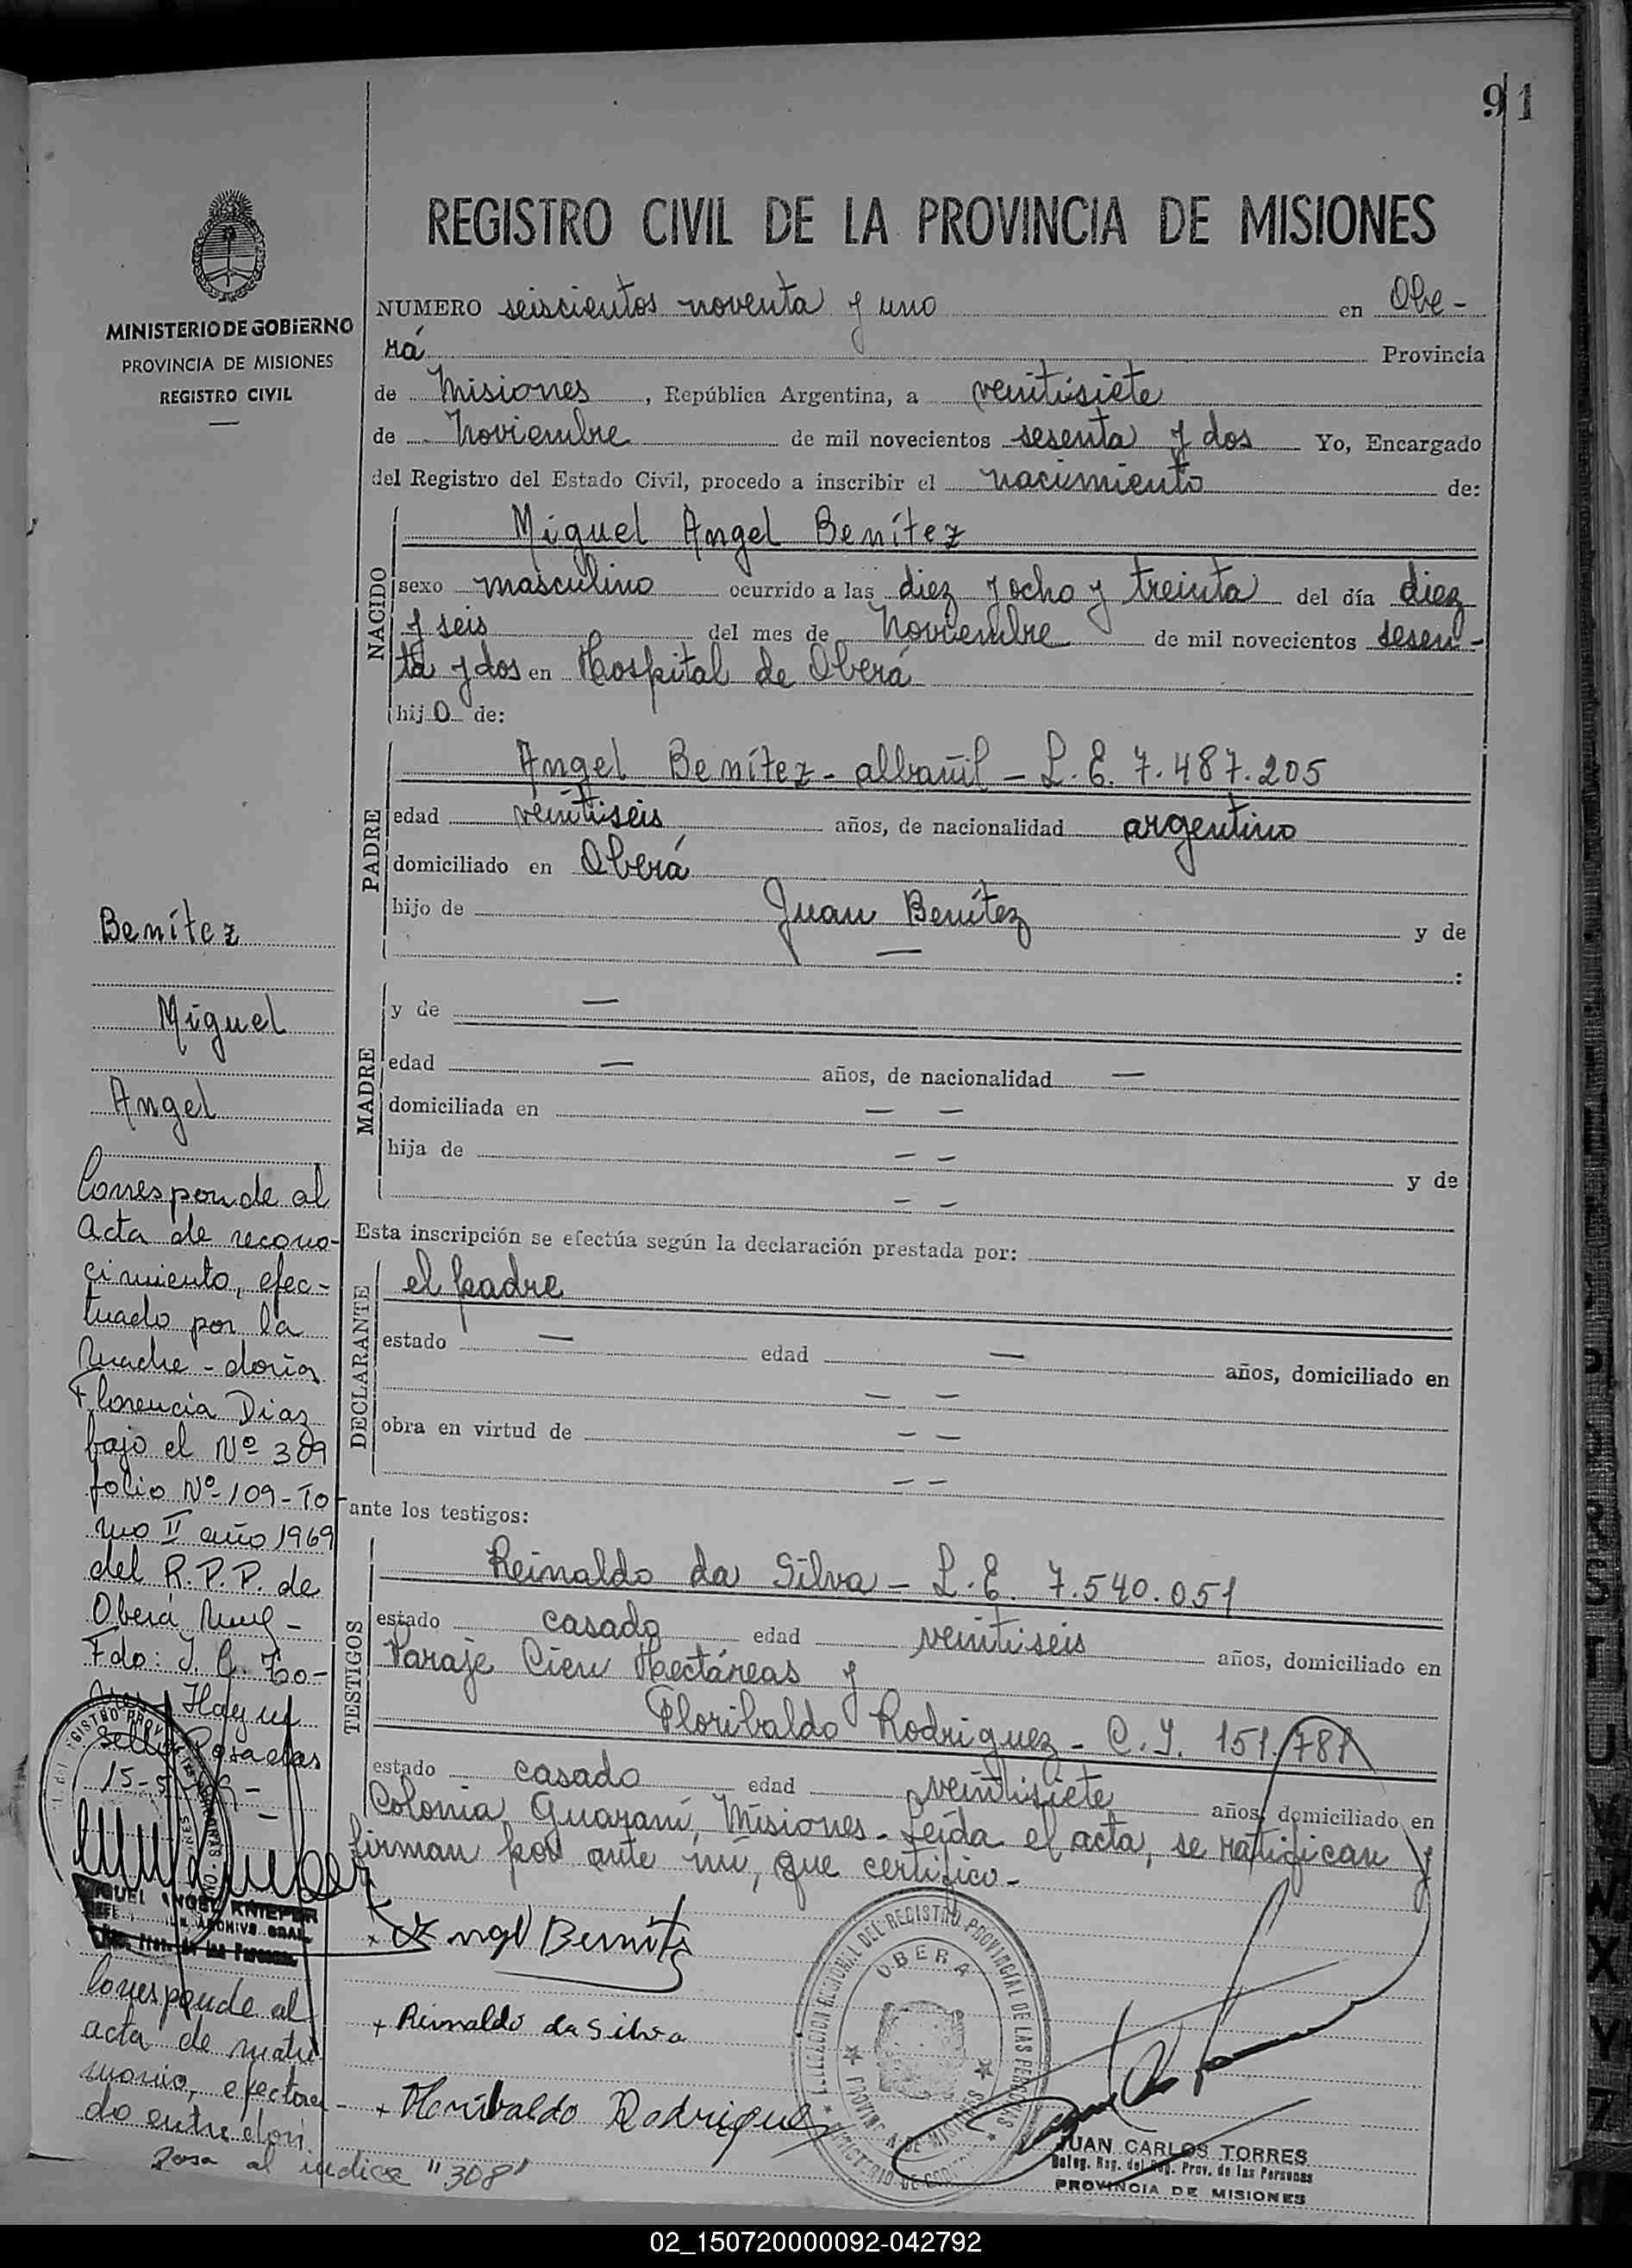 91
REGISTRO CIVIL DE LA PROVINCIA DE MISIONES
MINISTERIO DE GOBIERNO
PROVINCIA DE MISIONES
REGISTRO CIVIL
NUMERO seiscientos noventa y uno en Obe-
rá Provincia
de Misiones, República Argentina, a veintisiete
de Noviembre de mil novecientos sesenta y dos Yo, Encargado
del Registro del Estado Civil, procedo a inscribir el nacimiento de:
NACIDO
Miguel Angel Benítez
sexo masculino ocurrido a las diez y ocho y treinta del día diez
y seis del mes de Noviembre de mil novecientos sesen-
ta y dos en Hospital de Oberá
hijo de:
PADRE
Angel Benítez - albañil - L.E. 7.487.205
edad veintiseis años, de nacionalidad argentino
domiciliado en Oberá
hijo de Juan Benítez y de
— :
MADRE
y de —
edad — años, de nacionalidad —
domiciliada en — —
hija de — — y de
— —
Esta inscripción se efectúa según la declaración prestada por:
DECLARANTE
el padre
estado — edad — años, domiciliado en
— —
obra en virtud de — —
— —
ante los testigos:
TESTIGOS
Reinaldo da Silva - L.E. 7.540.051
estado casado edad veintiseis años, domiciliado en
Paraje Cien Hectáreas y
Floribaldo Rodriguez - C.I. 151.781
estado casado edad veintisiete años, domiciliado en
Colonia Guaraní, Misiones - Leída el acta, se ratifican y
firman por ante mí, que certifico -
Angel Benitez
+ Reinaldo da Silva
+ Floribaldo Rodriguez
DELEGACION REGIONAL DEL REGISTRO PROVINCIAL DE LAS PERSONAS
OBERA
PROVINCIA DE MISIONES
MINISTERIO DE GOBIERNO
JUAN CARLOS TORRES
Deleg. Reg. del Reg. Prov. de las Personas
PROVINCIA DE MISIONES
Benítez
Miguel
Angel
Corresponde al
acta de recono-
cimiento, efec-
tuado por la
madre - doña
Florencia Diaz
bajo el Nº 309
folio Nº 109 - To-
mo II año 1969
del R.P.P. de
Oberá
Fdo: J. C. To-
rres. Hay un
Sello Posadas
15-5-
MIGUEL ANGEL KNIEPER
JEFE ARCHIVO GRAL
Reg. Prov. de las Personas
Corresponde al
acta de matri-
monio, efectua-
do entre don
Pasa al indice "308"
02_150720000092-042792